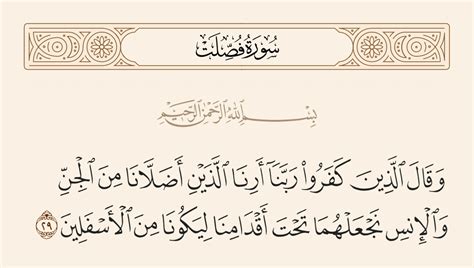 سُورَةُ فُصِّلَتۡ
بِسۡمِ ٱللَّهِ ٱلرَّحۡمَٰنِ ٱلرَّحِيمِ
وَقَالَ ٱلَّذِينَ كَفَرُواْ رَبَّنَآ أَرِنَا ٱلَّذَيۡنِ أَضَلَّانَا مِنَ ٱلۡجِنِّ
وَٱلۡإِنسِ نَجۡعَلۡهُمَا تَحۡتَ أَقۡدَامِنَا لِيَكُونَا مِنَ ٱلۡأَسۡفَلِينَ ٢٩